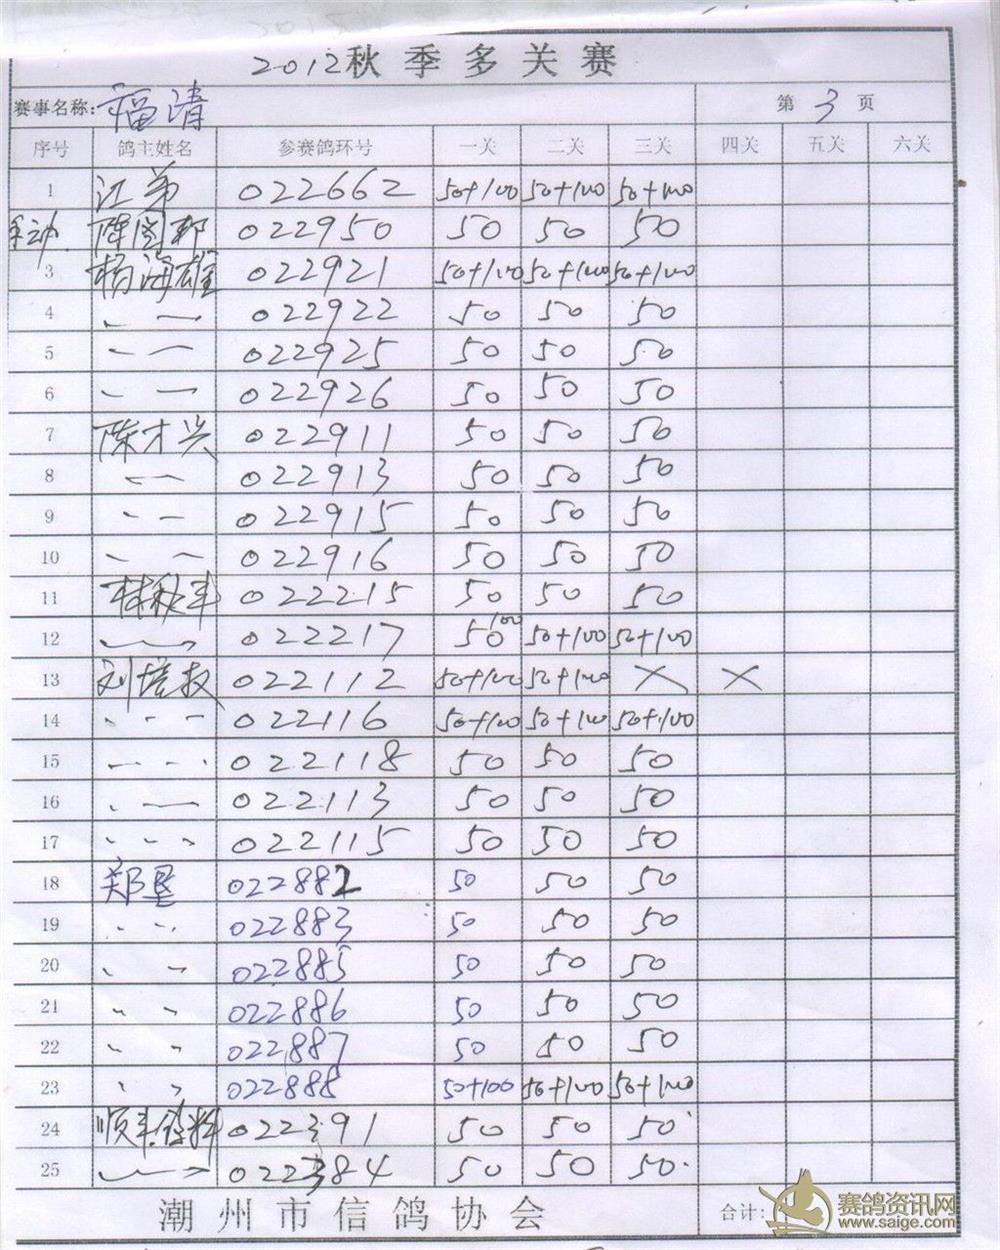 2012秋季多关赛
赛事名称: 福清 第 3 页
序号 鸽主姓名 参赛鸽环号 一关 二关 三关 四关 五关 六关
1 江弟 022662 50+100 50+100 50+100
022950 50 50 50
3 杨海雄 022921 50+100 50+100 50+100
4 〃 022922 50 50 50
5 〃 022925 50 50 50
6 〃 022926 50 50 50
7 陈才兴 022911 50 50 50
8 〃 022913 50 50 50
9 〃 022915 50 50 50
10 〃 022916 50 50 50
11 林秋丰 022215 50 50 50
12 〃 022217 50 100 50+100 50+100
13 刘培 022112 50+100 50+100 × ×
14 〃 022116 50+100 50+100 50+100
15 〃 022118 50 50 50
16 〃 022113 50 50 50
17 〃 022115 50 50 50
18 郑垦 022882 50 50 50
19 〃 022883 50 50 50
20 〃 022885 50 50 50
21 〃 022886 50 50 50
22 〃 022887 50 50 50
23 〃 022888 50+100 50+100 50+100
24 顺丰鸽粮 022391 50 50 50
25 〃 022384 50 50 50
潮州市信鸽协会 合计:
赛鸽资讯网
www.saige.com